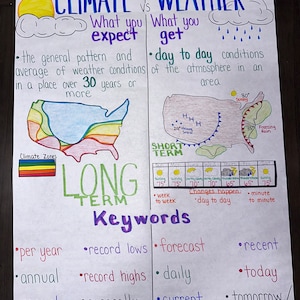 CLIMATE vs WEATHER
What you expect
What you get
• the general pattern and average of weather conditions in a place over 30 years or more
• day to day conditions of the atmosphere in an area
Climate Zones
LONG TERM
SHORT TERM
H H
Freezing Rain
Changes happen:
• week to week
• day to day
• minute to minute
Keywords
• per year
• record lows
• forecast
• recent
• annual
• record highs
• daily
• today
• current
• tomorrow